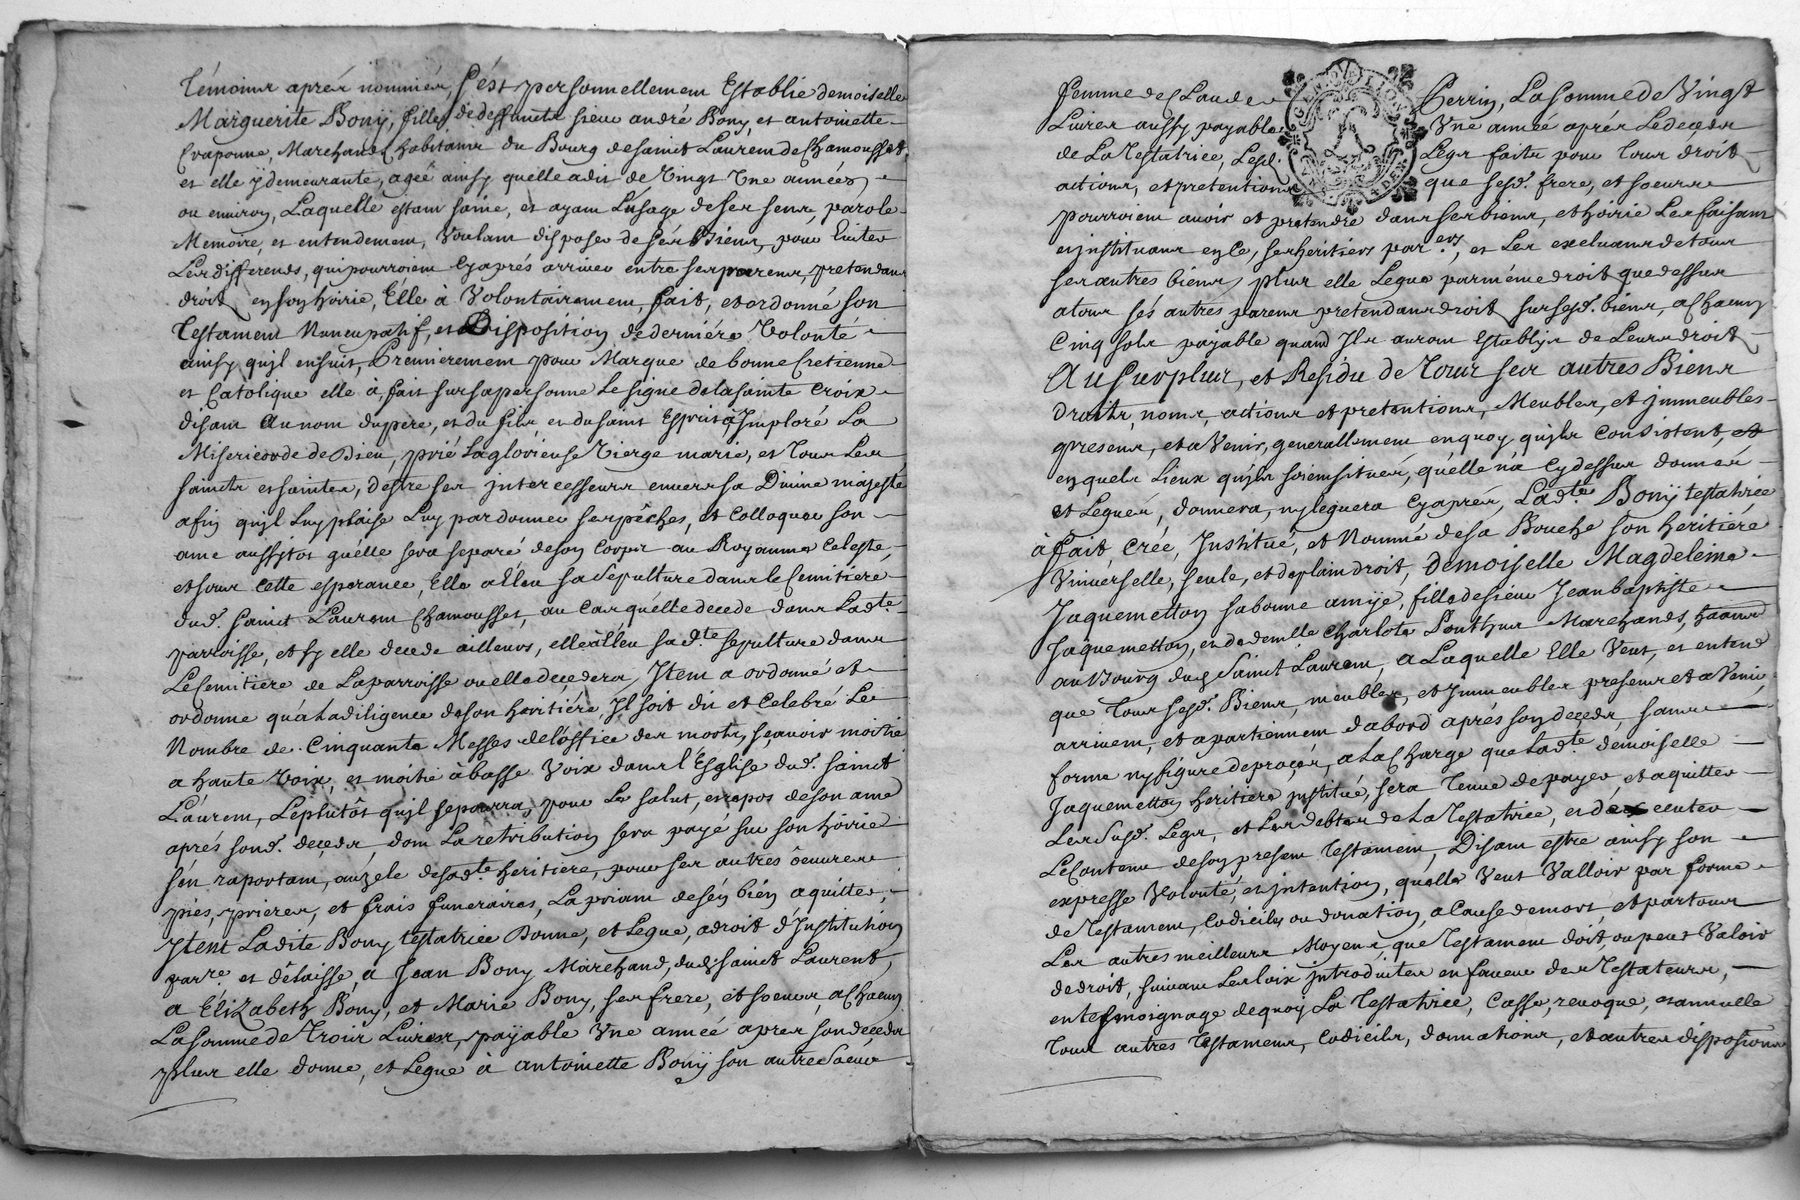 Témoins aprés nommés, s'ést personnellement Establie demoiselle
Marguerite Bonÿ, fille de deffunts sieur andré Bony, et antoinette
Craponne, Marchands habitants du Bourg de sainct Laurent de Chamousset,
et elle ÿ demeurante, ageé ainsy quelle a dit de Vingt Une années
ou environ, Laquelle estant saine, et ayant Lusage de ses sens parole
Memoire, et entendement, Voulant disposer de sés Biens, pour Eviter
Les differends, qui pourroient Cyaprés arriver entre ses parens, pretendans
droit en son hoirie, Élle à Volontairement fait, et ordonné son
Testament Nuncupatif, et Disposition de derniére Volonté
ainsy quil ensuit, Premierement pour Marque de bonne Cretienne
et Catolique elle à fait sur sa personne Le signe de la sainte Croix
disant Au nom du pere, et du fils, et du saint Esprit, à Imploré La
Misericorde de Dieu, prié La glorieuse Vierge marie, et Tous Les
saincts et saintes, d'estre ses jntercesseurs envers sa Divine majesté
afin qu'jl Luy plaise Luy pardonner ses pêches, et Colloquer son
ame aussytot qu'élle sera separé de son Corps au Royaume Celeste,
et sous cette esperance, Elle a Éleu sa sepulture dans le Cemitiere
dud. sainct Laurent Chamousset, au Cas qu'élle decede dans Lad.te
parroisse, et sy elle decede ailleurs, elle à Éleu sa d.te sepulture dans
Le semitiere de La parroisse ou elle deçedera, Jtem a ordonné et
ordonne qu'à La diligence de son heritiére, Jl soit dit et Celebré Le
Nombre de Cinquante Messes de l'óffice des morts, sçavoir moitié
a haute Voix, et moitié à basse Voix dans l'Ésglise dud. sainct
Laurent, Le plutôt quil se pourra, pour Le salut, et repos de son ame
aprés son d. deçeds dont La retribution sera payé sur son hoirie
s'én raportant, au zele de sad.te heritiere, pour ses autres ôeuvres
pies, prieres, et frais funeraires, La priant de s'én bién aquitter,
Jtem Ladite Bony testatrice Donne, et Legue, a droit d'Institution
par.re et délaisse, à Jean Bony Marchand, dud. sainct Laurent,
a Élizabeth Bony, et Marie Bony, ses frere, et soeurs, a Chacun
La somme de Trois Livres, payable Une anneé apres son deçeds
plus elle donne, et Legue à antoinette Bonÿ son autre soeur
femme de Claude Perrin, La somme de Vingt
Livres aussy payable Une anneé aprés Le deçeds
de La Testatrice, Lesd. Legs faits pour Tous droits
actions, et pretentions que sesd. frere, et soeurs
pourroient avoir et pretendre dans ses biens, et hoirie Les faisant
et jnstituant en Ce, ses heritiers par.ers, et Les excluant de tous
ses autres biens, plus elle Legue par même droit que dessus
a tous sés autres parens pretendans droit sur sesd. biens, a Chacun
Cinq sols payable quand Jls auront Establÿs de Leurs droits
Au surplus, et Residu de Tous ses autres Biens
droits, noms, actions et pretentions, Meubles, et jmmeubles
presens, et a Venir, generallement en quoy, qu'jls Consistent, et
en quels Lieux qu'jls soient situés, qu'élle n'a Cy dessus donnés
et Legués, donnera, ny leguera Cyaprés, Lad.te Bonÿ testatrice
à fait, Créé, Jnstitué, et Nommé de sa Bouche son heritiére
Universelle, seule, et de plain droit, demoiselle Magdeleine
Jaquemetton sa bonne amÿe, fille de sieur Jean baptiste
Jaquemetton, et de dem.lle Charlote Ponthus Marchands, haants
au Bourg dud. Sainct Laurent, a Laquelle Elle Veut, et entend
que Tous sesd. Biens, meubles, et Jmmeubles presens et a Venir,
arrivent, et apartiennent d'abord aprés son deçeds, sans
forme ny figure de procés, a La Charge que Lad.te demoiselle
Jaquemetton heritiere jnstitué, sera Tenue de payer et aquitter
Les susd. Legs, et Les debtes de La Testatrice, et d'éxecuter
Le Contenu de son present Testament, Disant estre ainsy son
expresse Volonté, et jntention, qu'elle Veut Valloir par forme
de Testament, Codicile, ou donation, a Cause de mort, et par tous
Les autres meilleurs Moyens que Testament doit, ou peut Valoir
de droit, suivant Les Loix jntroduites en faveur des Testateurs,
en tesmoignage de quoy La Testatrice, Casse, revoque, et annulle
Tous autres Testamens, Codiciles, donnations, et autres dispositions